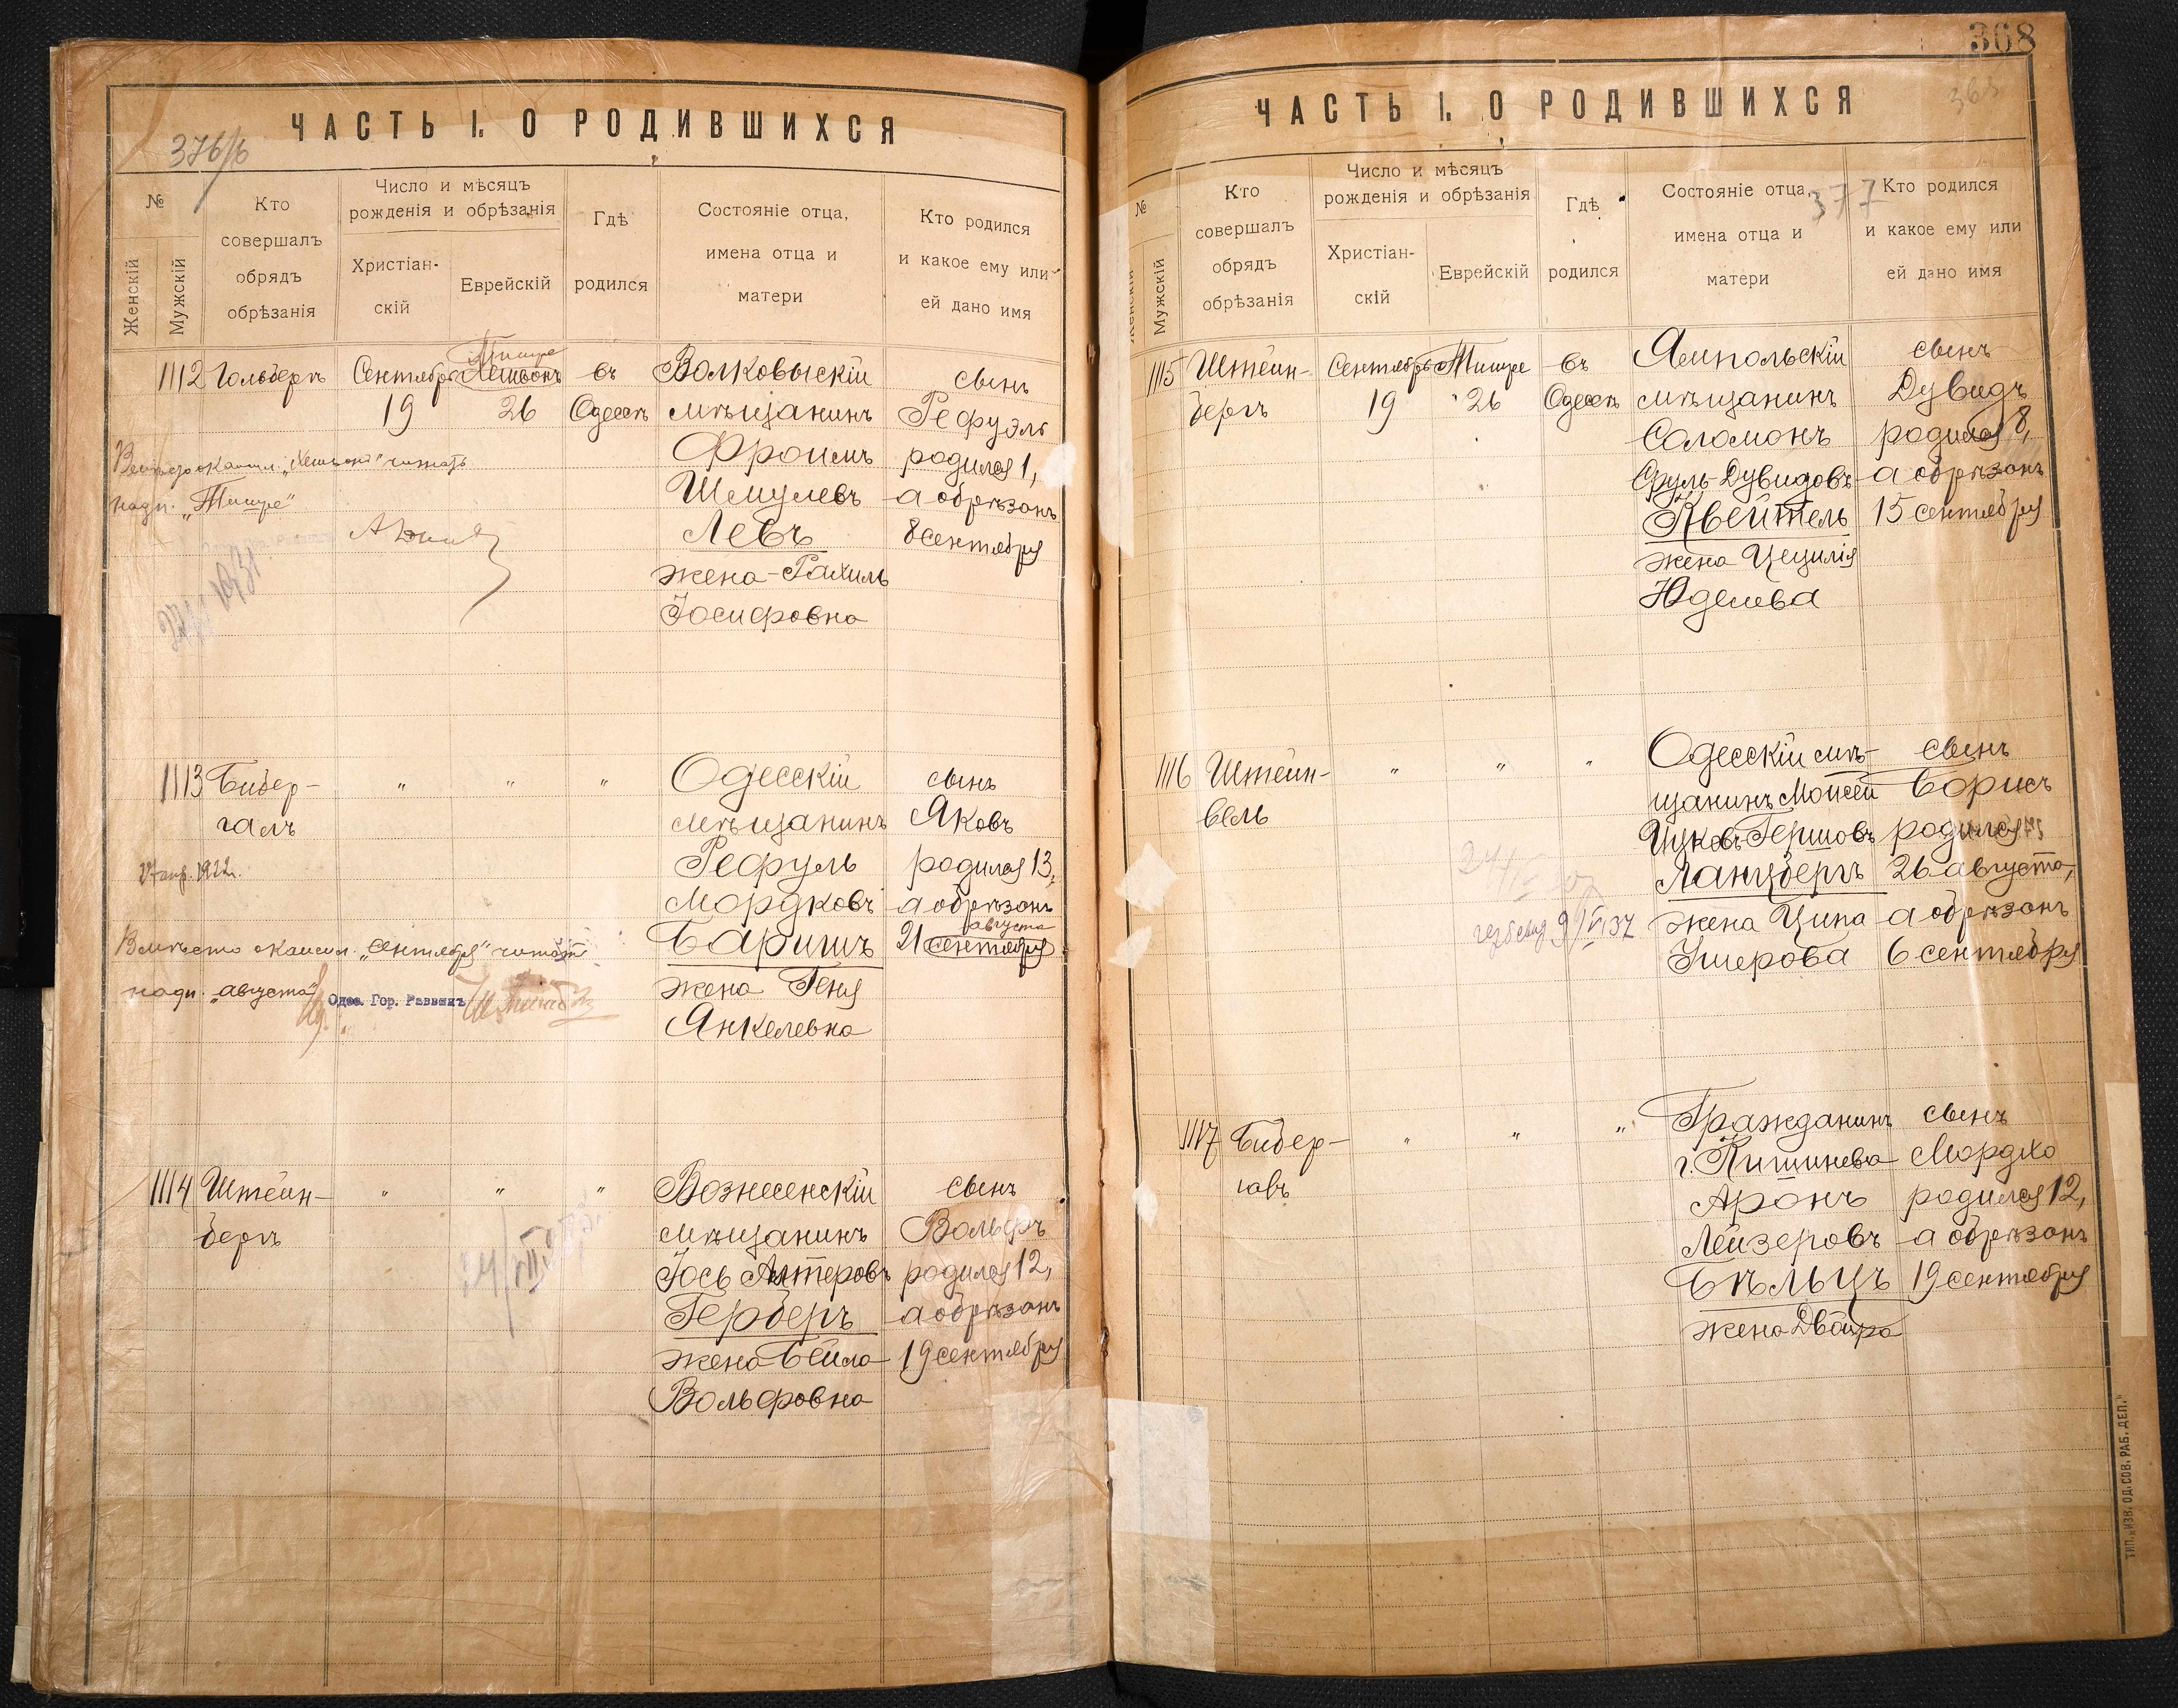 376/6
ЧАСТЬ I. О РОДИВШИХСЯ
№
Женскій
Мужскій
Кто
совершалъ
обрядъ
обрѣзанія
Число и мѣсяцъ
рожденія и обрѣзанія
Христіан-
скій
Еврейскій
Гдѣ
родился
Состояніе отца,
имена отца и
матери
Кто родился
и какое ему или
ей дано имя
1112
Гольбергъ
Сентября
19
Тишре
Хешвонъ
26
въ
Одессѣ
Волковыскій
мѣщанинъ
Фроимъ
Шмулевъ
Левъ
жена - Рахиль
Іосифовна
сынъ
Рефуэль
родился 1,
а обрѣзанъ
8 сентября
Вмѣсто окаисл. „Хешвонъ" читать
надп. „Тишре"
1113
Бибер-
галъ
"
"
"
Одесскій
мѣщанинъ
Рефуль
Мордковъ
Баришъ
жена Геня
Янкелевна
сынъ
Яковъ
родился 13,
а обрѣзанъ
августа
21 сентября
27 апр. 1922 г.
Вмѣсто окаисл. „сентября" читать
надп. „августа"
Одес. Гор. Раввинъ
1114
Штейн-
бергъ
"
"
"
Вознесенскій
мѣщанинъ
Іось Алтеровъ
Герберъ
жена Бейла
Вольфовна
сынъ
Вольфъ
родился 12,
а обрѣзанъ
19 сентября
308
365
ЧАСТЬ I. О РОДИВШИХСЯ
377
№
Женскій
Мужскій
Кто
совершалъ
обрядъ
обрѣзанія
Число и мѣсяцъ
рожденія и обрѣзанія
Христіан-
скій
Еврейскій
Гдѣ
родился
Состояніе отца,
имена отца и
матери
Кто родился
и какое ему или
ей дано имя
1115
Штейн-
бергъ
Сентября
19
Тишре
26
въ
Одессѣ
Ямпольскій
мѣщанинъ
Соломонъ
Сруль-Дувидовъ
Квейтель
жена Цецилія
Юделева
сынъ
Дувидъ
родился 8,
а обрѣзанъ
15 сентября
1116
Штейн-
вель
"
"
"
Одесскій мѣ-
щанинъ Моисей
Ицковъ-Гершовъ
Ланцбергъ
жена Ципа
Ушерова
сынъ
Борисъ
родился
26 августа,
а обрѣзанъ
6 сентября
1117
Бибер-
галъ
"
"
"
Гражданинъ
г. Кишинева
Аронъ
Лейзеровъ
Бѣльцъ
жена Двойра
сынъ
Мордхо
родился 12,
а обрѣзанъ
19 сентября
ТИП. „ИЗВ. ОД. СОВ. РАБ. ДЕП."